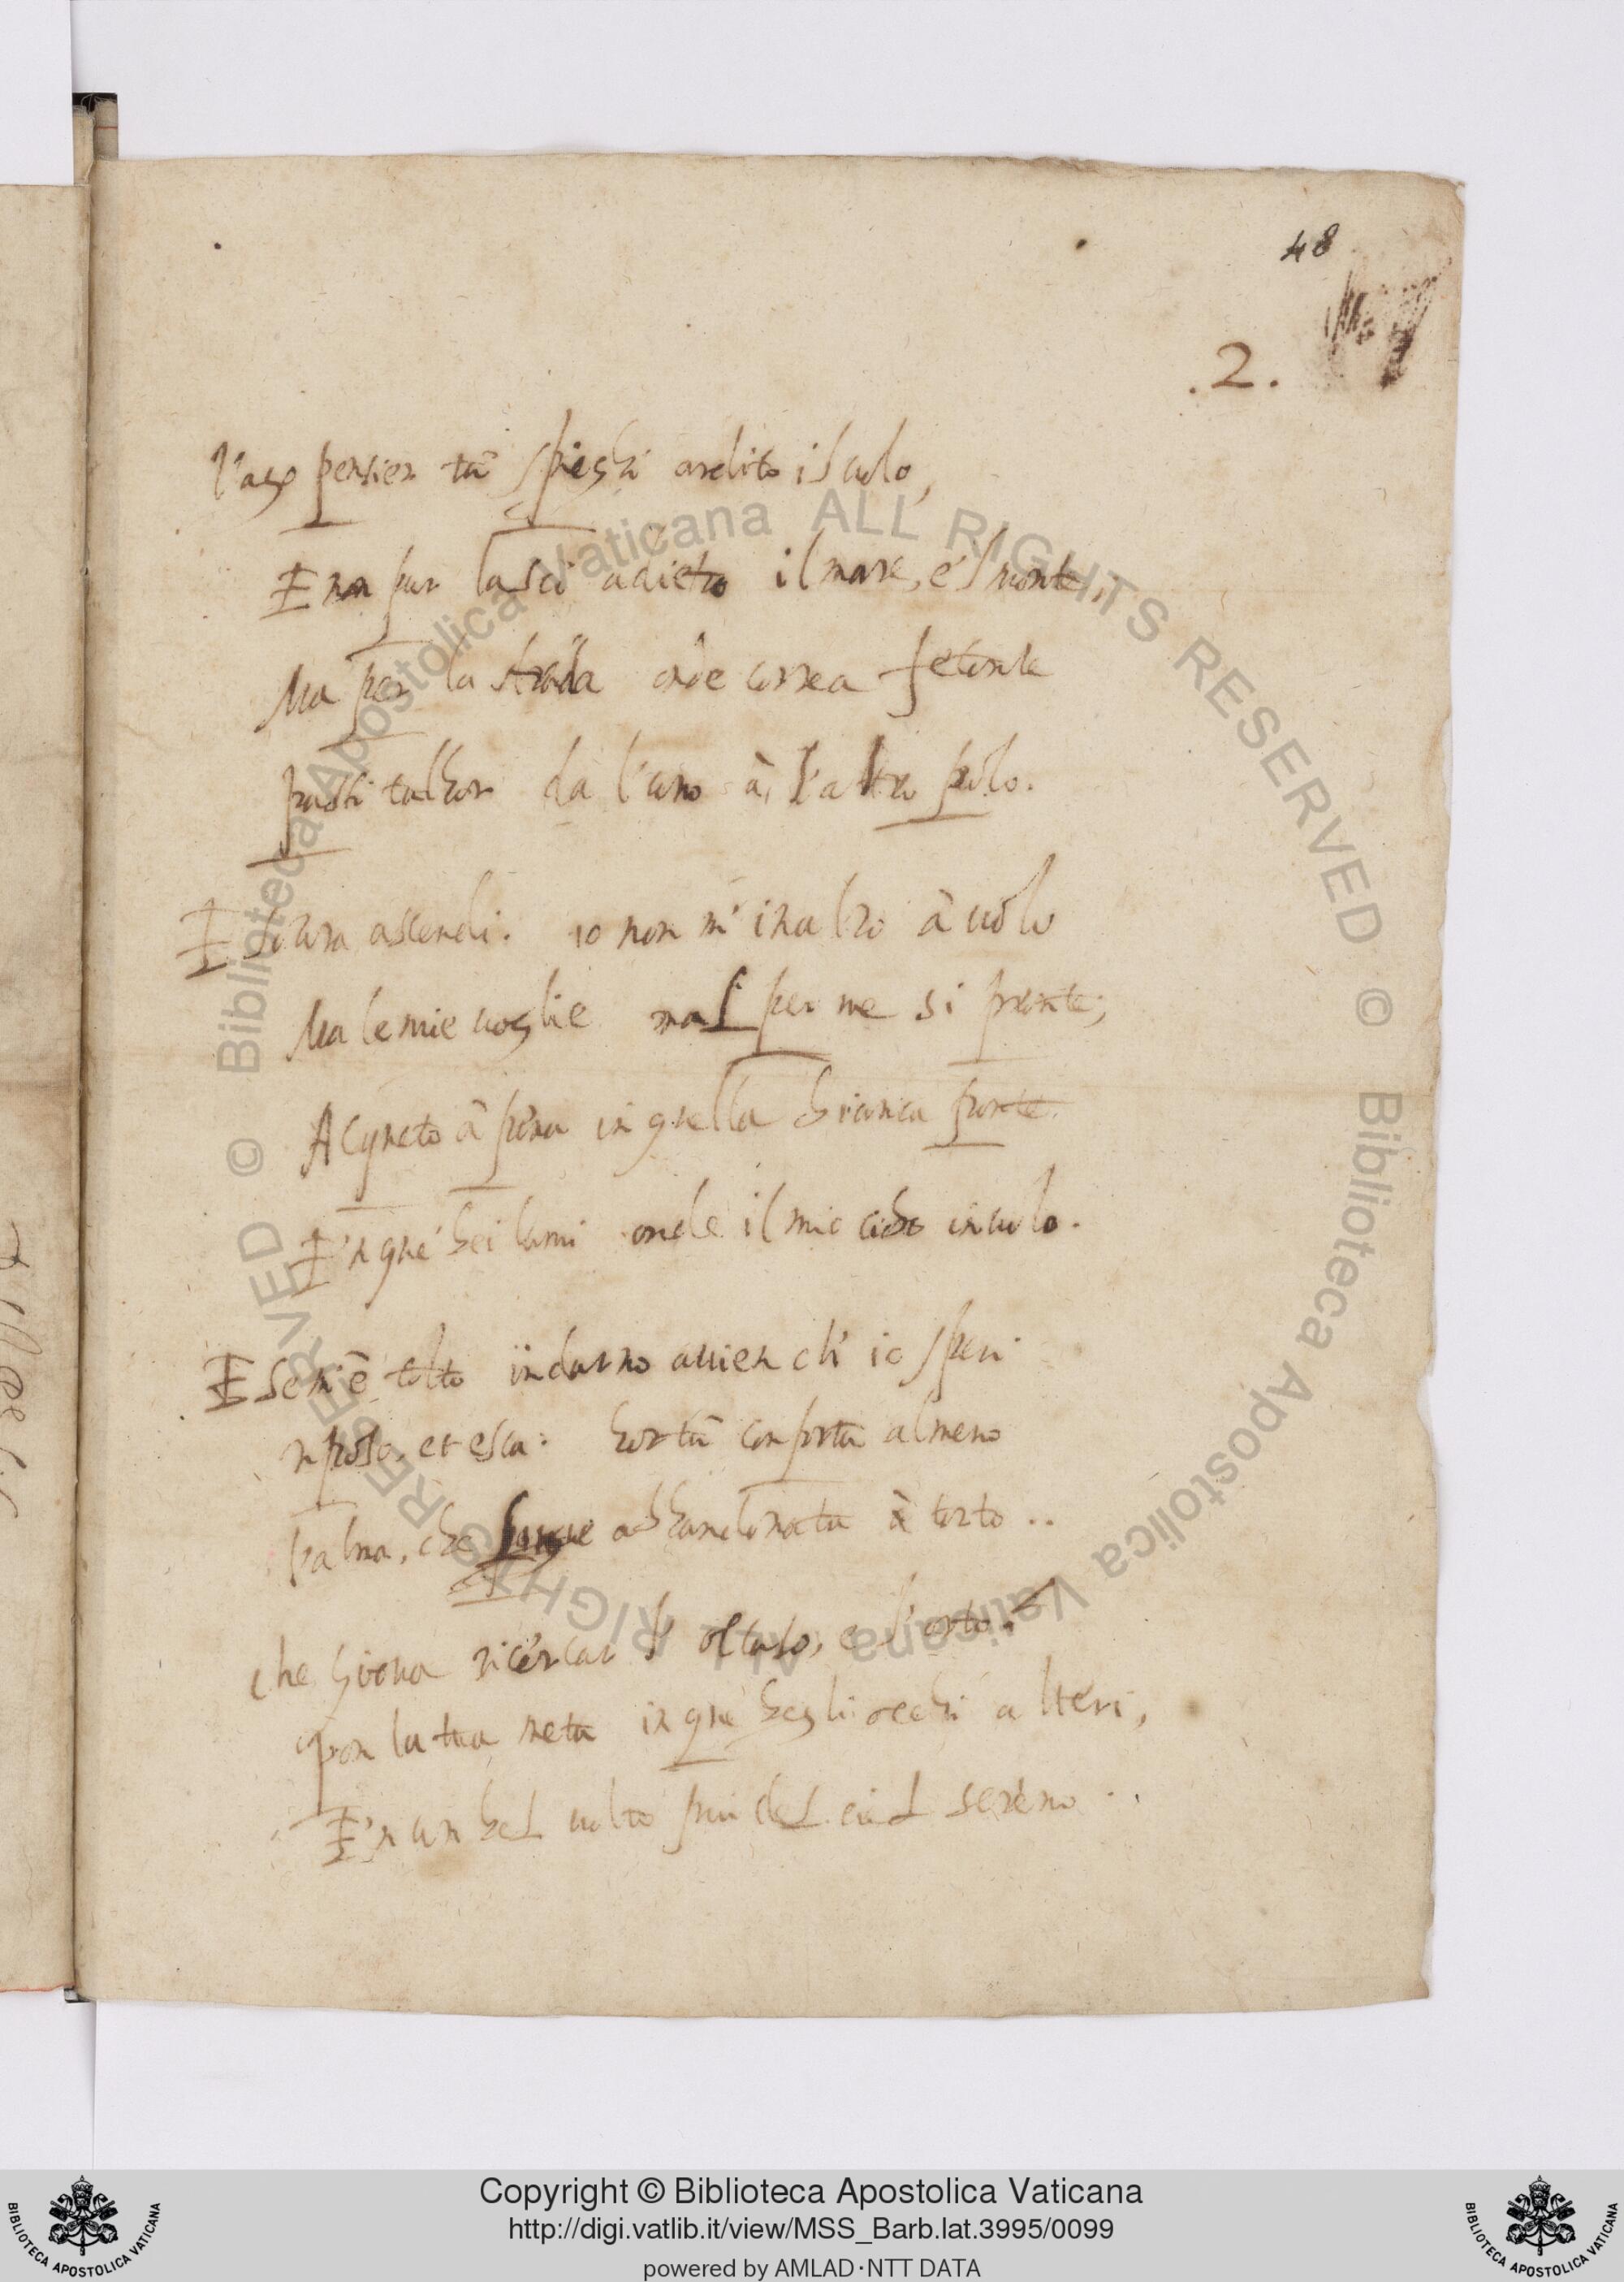 48
.2.
Vago pensier tù spieghi ardito il volo,
E non pur lasci adietro il mare, e'l monte,
Ma per la strada onde correa fetonte
passi talhor da l'uno à l'altro polo.
E sovra ascendi. io non m'inalzo à volo
Ma le mie voglie mal per me si pronte,
Acqueto à pena in quella bianca fronte
E'n que' bei lumi onde il mio cibo involo.
E se m'è tolto indarno avien ch'io speri
riposo, et esca: hor tù conforta almeno
l'alma, che langue abbandonata à torto..
che giova ricercar l'occaso, e l'orto?
pon la tua meta in que' begli occhi alteri,
E'n un bel volto piu del ciel sereno..
Copyright © Biblioteca Apostolica Vaticana
http://digi.vatlib.it/view/MSS_Barb.lat.3995/0099
powered by AMLAD·NTT DATA
BIBLIOTECA APOSTOLICA VATICANA
BIBLIOTECA APOSTOLICA VATICANA
© Biblioteca Apostolica Vaticana ALL RIGHTS RESERVED © Biblioteca Apostolica Vaticana ALL RIGHTS RESERVED